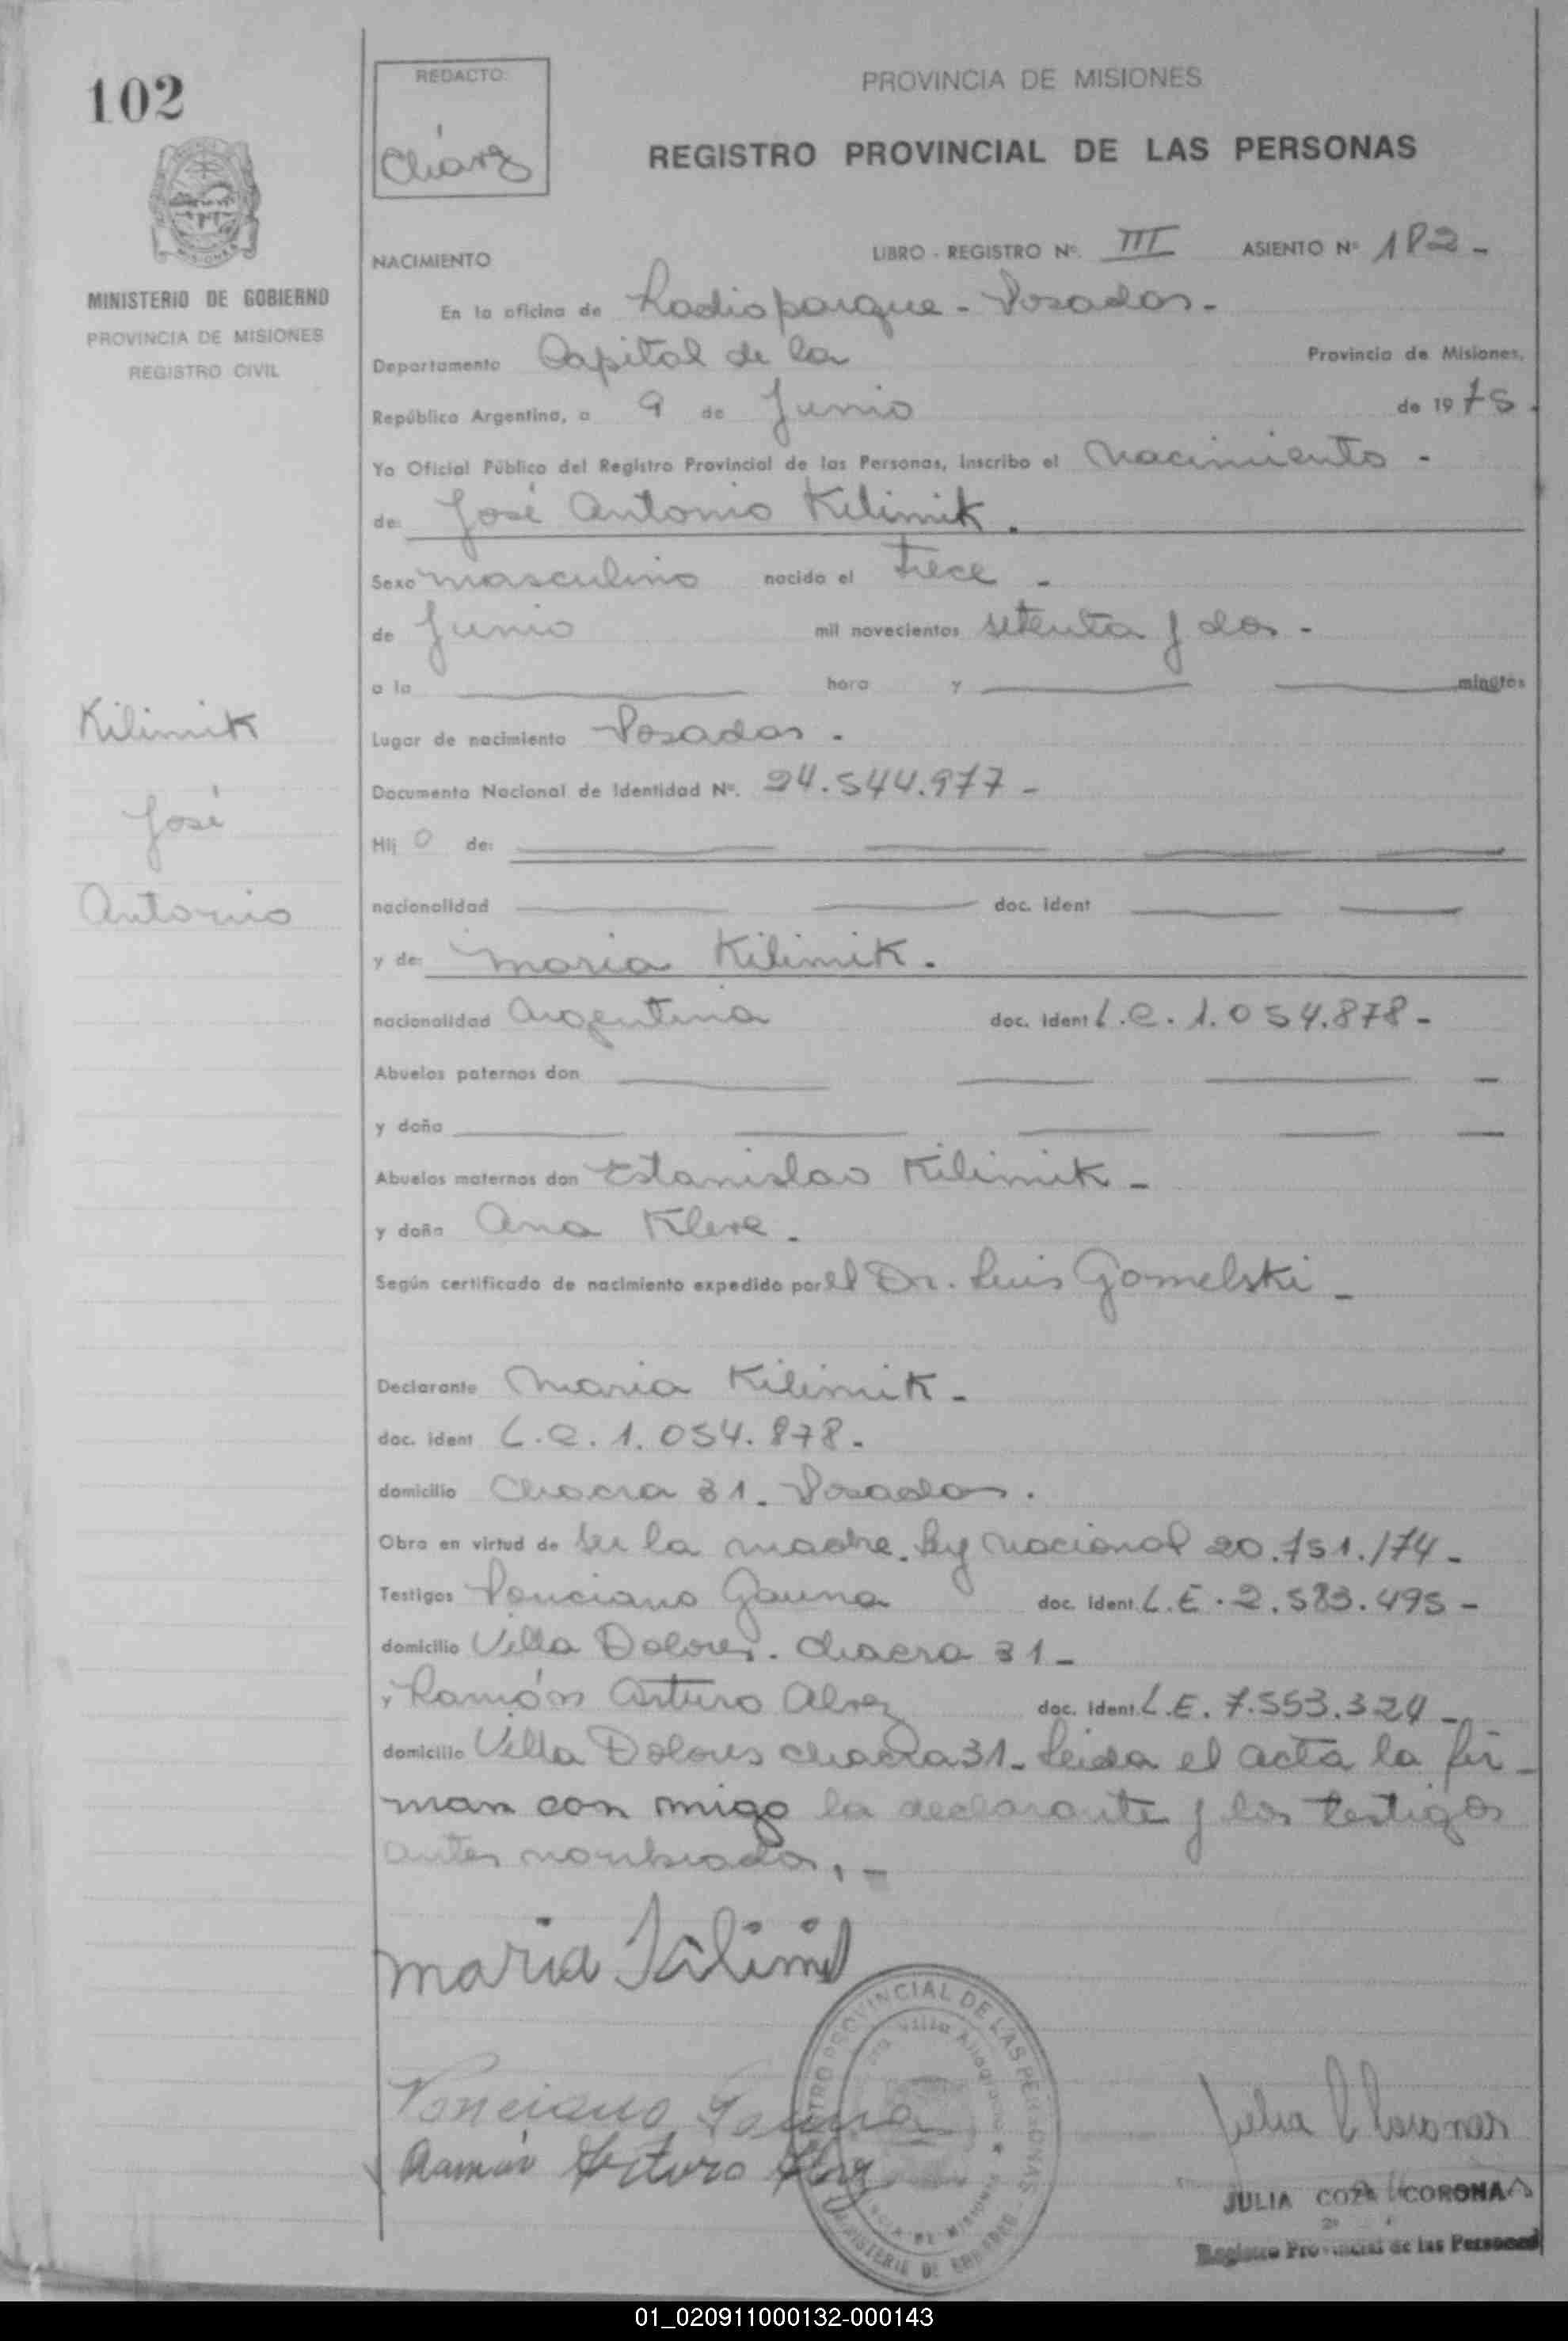 102
MINISTERIO DE GOBIERNO
PROVINCIA DE MISIONES
REGISTRO CIVIL
Kilimik
José
Antonio
REDACTO:
PROVINCIA DE MISIONES
REGISTRO PROVINCIAL DE LAS PERSONAS
NACIMIENTO LIBRO - REGISTRO Nº. III ASIENTO Nº 182 -
En la oficina de Radioparque - Posadas -
Departamento Capital de la Provincia de Misiones,
República Argentina, a 9 de Junio de 1975.
Yo Oficial Público del Registro Provincial de las Personas, inscribo el Nacimiento -
de: José Antonio Kilimik.
Sexo masculino nacido el trece -
de Junio mil novecientos setenta y dos -
a la hora y minutos
Lugar de nacimiento Posadas.
Documento Nacional de Identidad Nº. 24.544.977 -
Hij o de:
nacionalidad doc. ident
y de: Maria Kilimik.
nacionalidad Argentina doc. ident L.C. 1.054.878 -
Abuelos paternos don
y doña
Abuelos maternos don Estanislao Kilimik -
y doña Ana
Según certificado de nacimiento expedido por el Dr. Luis Gomelski -
Declarante Maria Kilimik -
doc. ident L.C. 1.054.878 -
domicilio Chacra 31. Posadas.
Obra en virtud de ser la madre. Ley Nacional 20.751./74 -
Testigos Ponciano Gauna doc. ident. L.E. 2.583.495 -
domicilio Villa Dolores. Chacra 31 -
y Ramón Arturo Alvez doc. ident. L.E. 7.553.324 -
domicilio Villa Dolores chacra 31 - Leida el acta la fir-
man con migo la declarante y los testigos
antes nombrados. -
maria Kilimik
Ponciano Gauna
Ramón Arturo Alvez
JULIA CORONA
Registro Provincial de las Personas
01_020911000132-000143